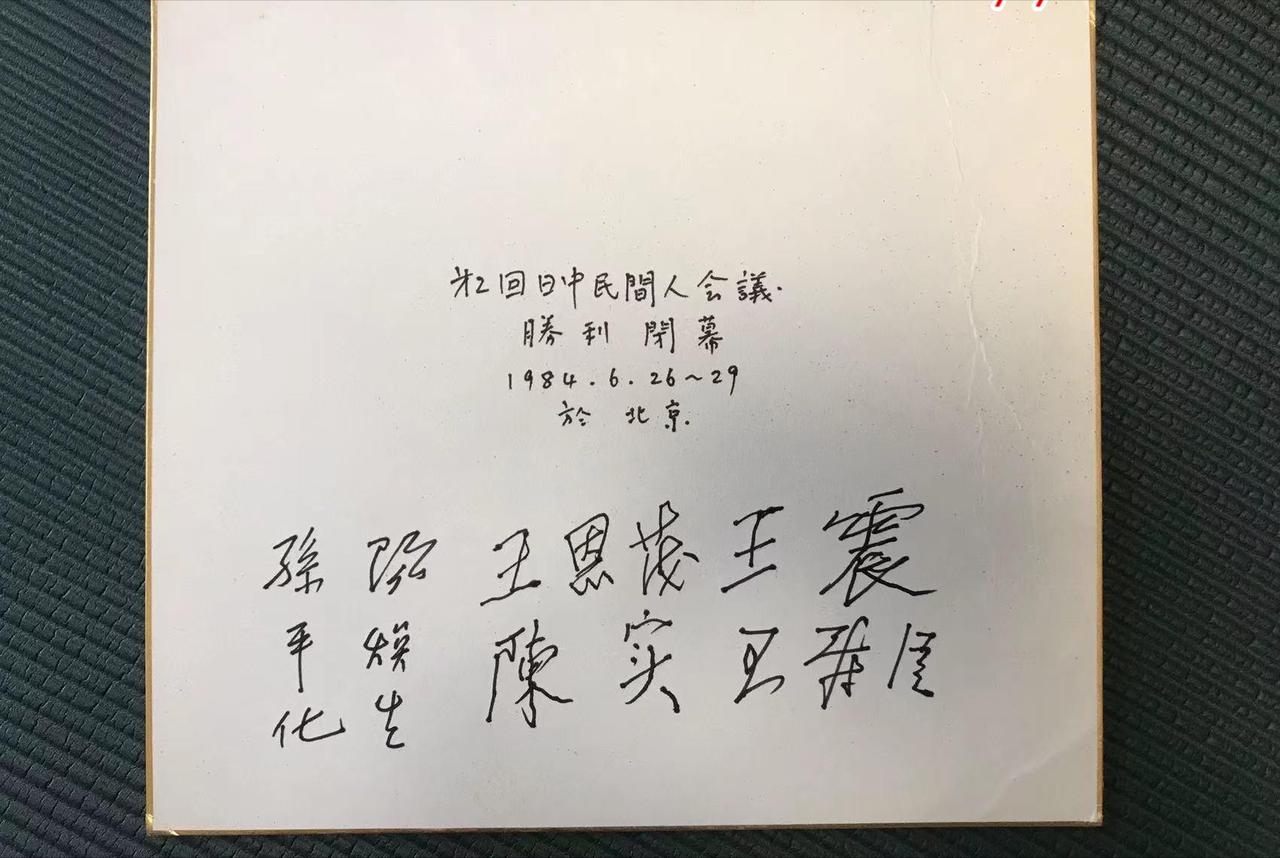 才2回日中民間人会議.
勝利閉幕
1984.6.26~29
於北京.
王恩茂 王震
陳实 王
焕生
孫平化